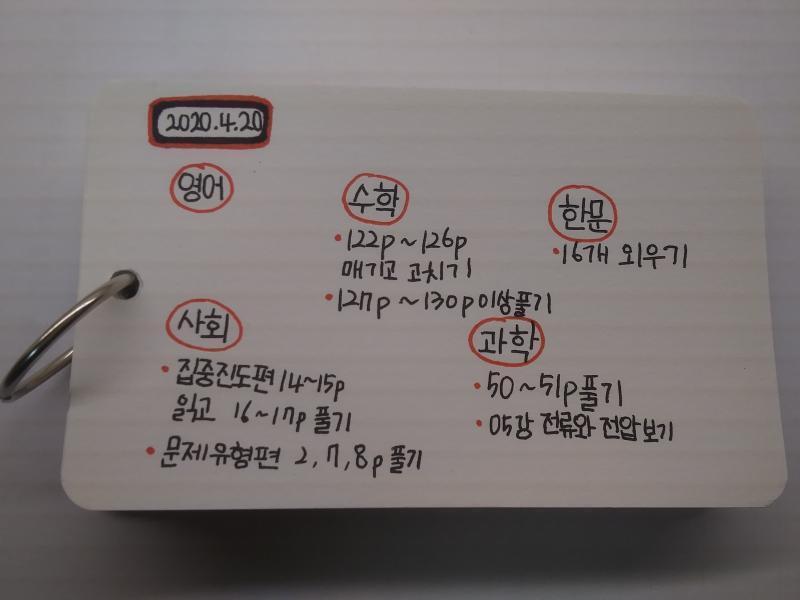 2020.4.20
영어
수학
• 122p ~ 126p
매기고 고치기
• 127p ~ 130p 이상 풀기
한문
• 16개 외우기
사회
• 집중진도편 14~15p
읽고 16~17p 풀기
• 문제유형편 2, 7, 8p 풀기
과학
• 50 ~ 51p 풀기
• 05강 전류와 전압 보기